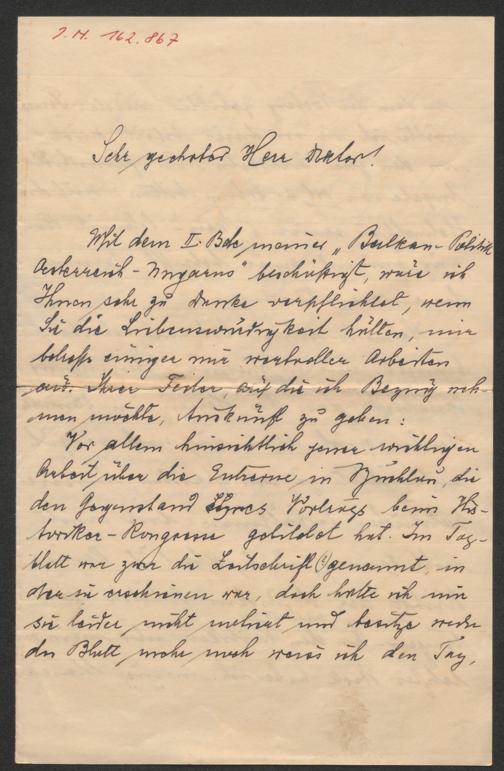 J.N. 162.867
Sehr geehrter Herr Doktor!
Mit dem II. Bde meiner „Balkan-Politik
Oesterreich-Ungarns" beschäftigt, wäre ich
Ihnen sehr zu Danke verpflichtet, wenn
Sie die Liebenswürdigkeit hätten, mir
betreffs einiger mir wertvoller Arbeiten
aus Ihrer Feder, auf die ich Bezug neh-
men möchte, Auskunft zu geben:
Vor allem hinsichtlich jener wichtigen
Arbeit über die Entrevue in Buchlau, die
den Gegenstand Ihres Vortrags beim His-
toriker-Kongresse gebildet hat. Im Tag-
blatt war zwar die Zeitschrift (?) genannt, in
der sie erschienen war, doch hatte ich mir
sie leider nicht notiert und besitze weder
das Blatt mehr noch weiss ich den Tag,